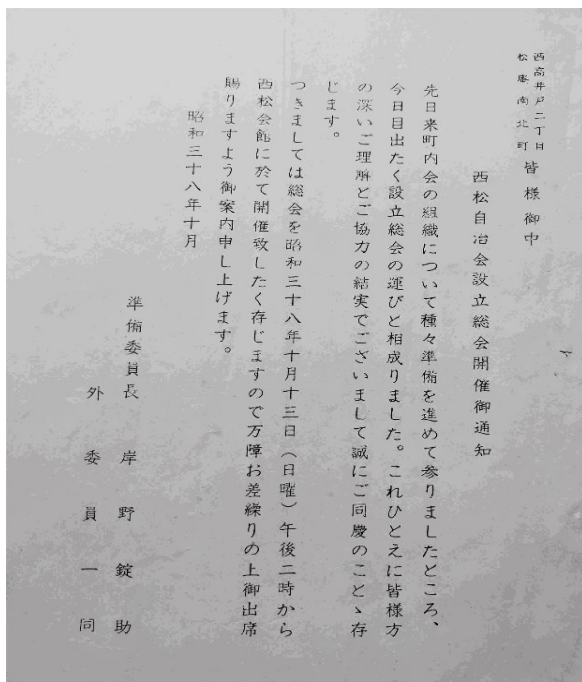 西高井戸二丁目
松庵南北町
皆様御中
西松自治会設立総会開催御通知
先日来町内会の組織について種々準備を進めて参りましたところ、
今日目出たく設立総会の運びと相成りました。これひとえに皆様方
の深いご理解とご協力の結実でございまして誠にご同慶のことゝ存
じます。
つきましては総会を昭和三十八年十月十三日（日曜）午後二時から
西松会館に於て開催致したく存じますので万障お差繰りの上御出席
賜りますよう御案内申し上げます。
昭和三十八年十月
準備委員長 岸野錠助
外委員一同